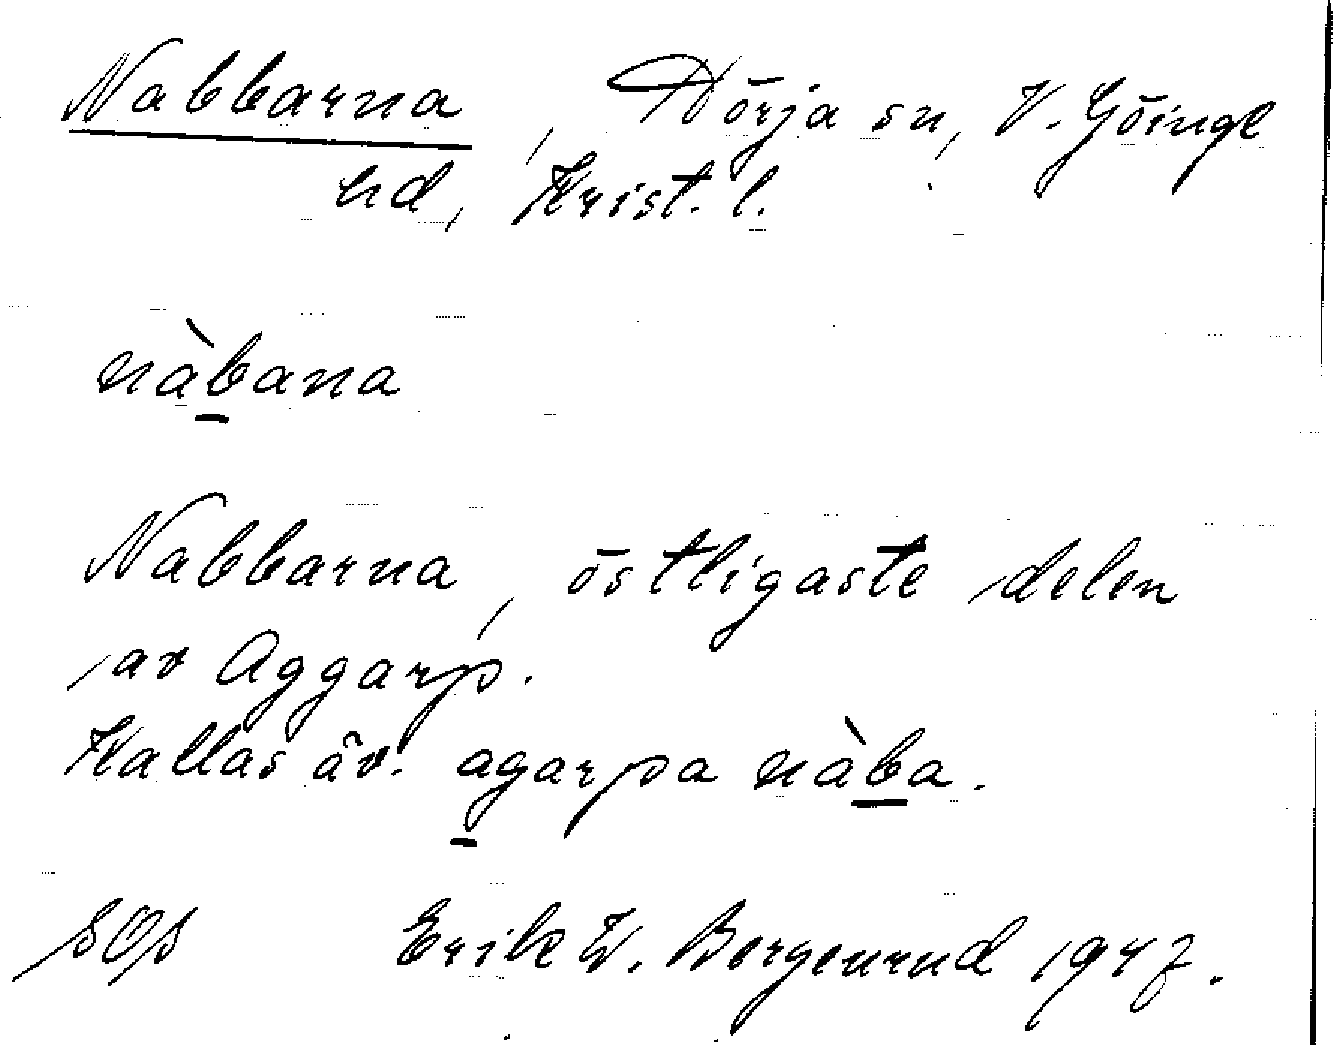 Nabbarna, Nörja sn, V. Göinge
hd, Krist. l.
nàbana
Nabbarna, östligaste delen
av Aggarp.
Kallas äv. agarpa nàba.
Erik W. Bergenrud 1947.